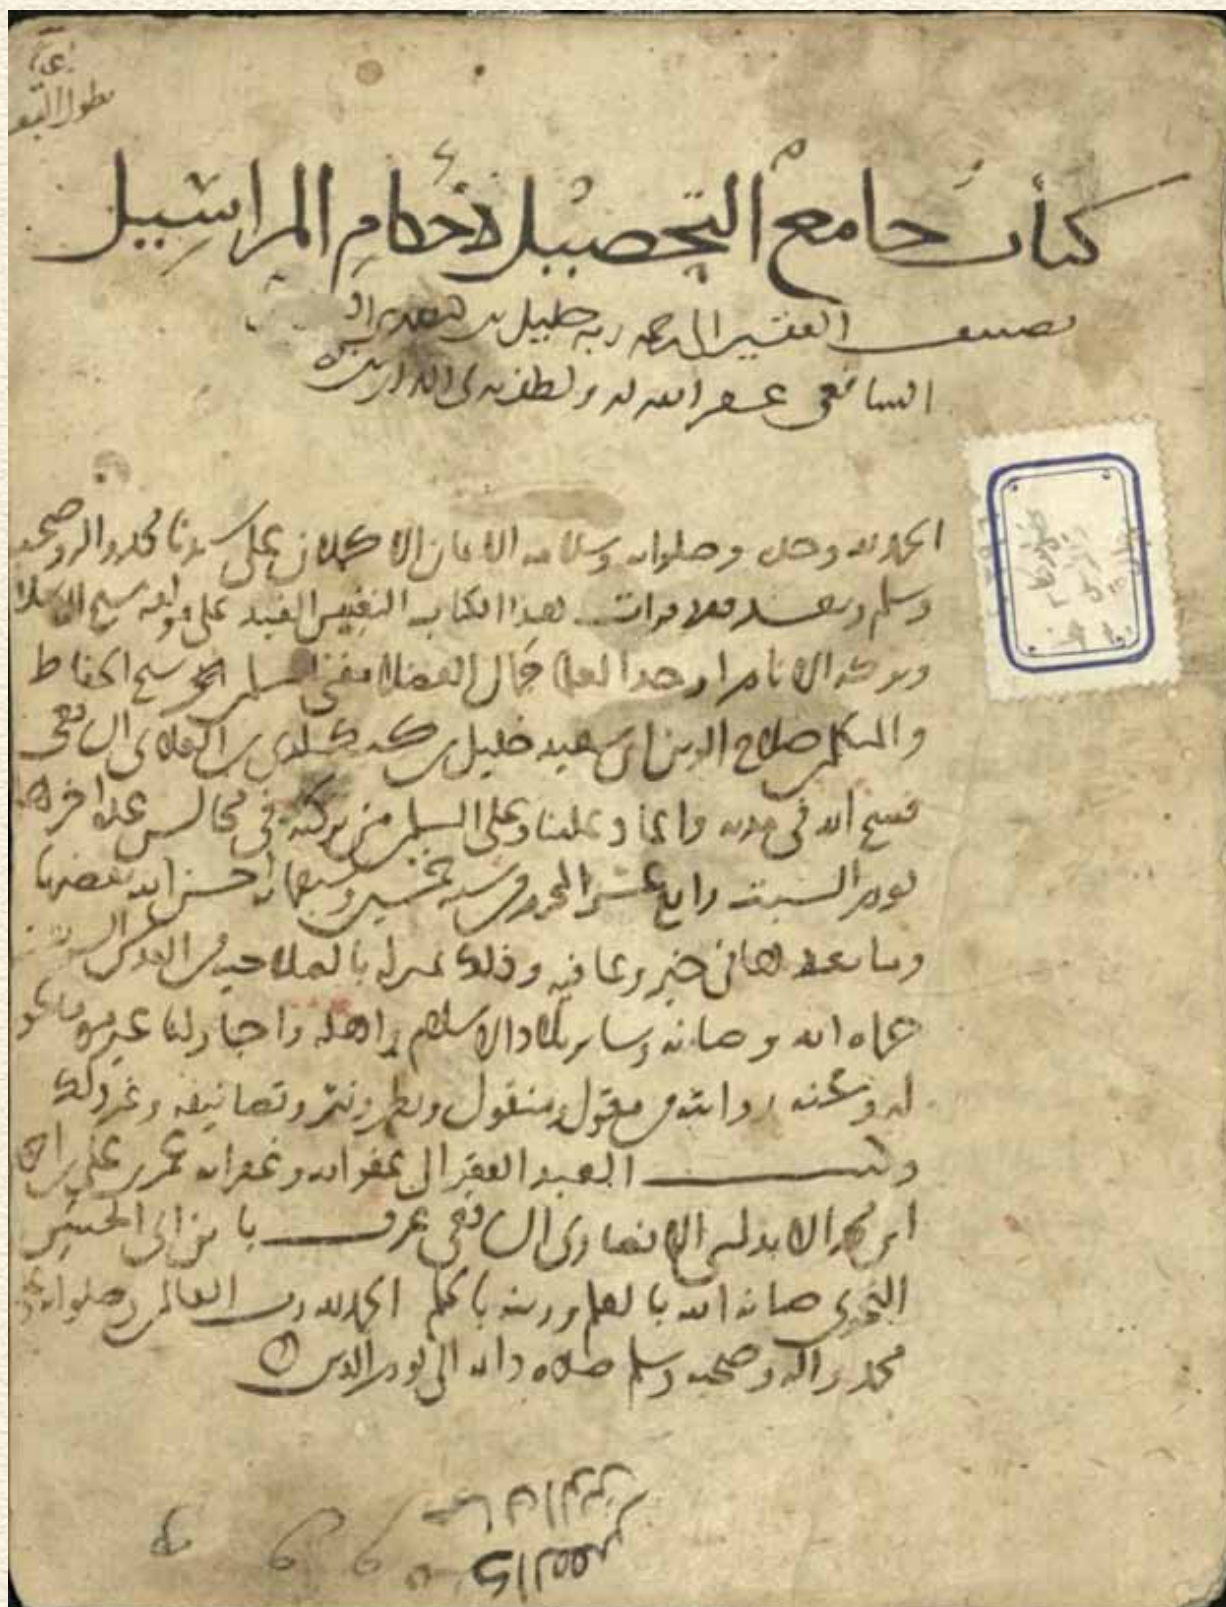 كتاب جامع التحصيل لأحكام المراسيل
تصنيف الفقير الى رحمة ربه خليل بن
الشافعي غفر الله له ولطف به في الدارين
الحمد لله وحده وصلواته وسلامه الاتمان الاكملان على سيدنا محمد واله وصحبه
وسلم وبعد فقد قرات هذا الكتاب النفيس المفيد على مولفه شيخ الاسلام
وبركة الانام اوحد العلما جمال الفضلا مفتي المسلمين شيخ الحفاظ
والمتكلمين صلاح الدين ابي سعيد خليل بن كيكلدي بن العلائي الشافعي
فسح الله في مدته واعاد علينا وعلى المسلمين من بركته في مجالس عدة اخرها
يوم السبت رابع عشر المحرم سنة خمسين وسبعماية احسن الله تقضيها
وما بعدها في خير وعافية وذلك بمنزله بالصلاحية من القدس الشريف
حماه الله وصانه وساير بلاد الاسلام واهله واجاز لنا غير مرة ما يجوز
له وعنه روايته من معقول ومنقول ونظم ونثر وتصانيفه وغير ذلك
وكتب العبد الفقير الى عفو الله وغفرانه عمر بن علي بن احمد
ابن محمد الاندلسي الانصاري الشافعي عرف بابن ابي الحسن
النحوي صانه الله بالعلم وزينه بالحلم الحمد لله رب العالمين وصلواته على
محمد واله وصحبه وسلم صلاة دائمة الى يوم الدين